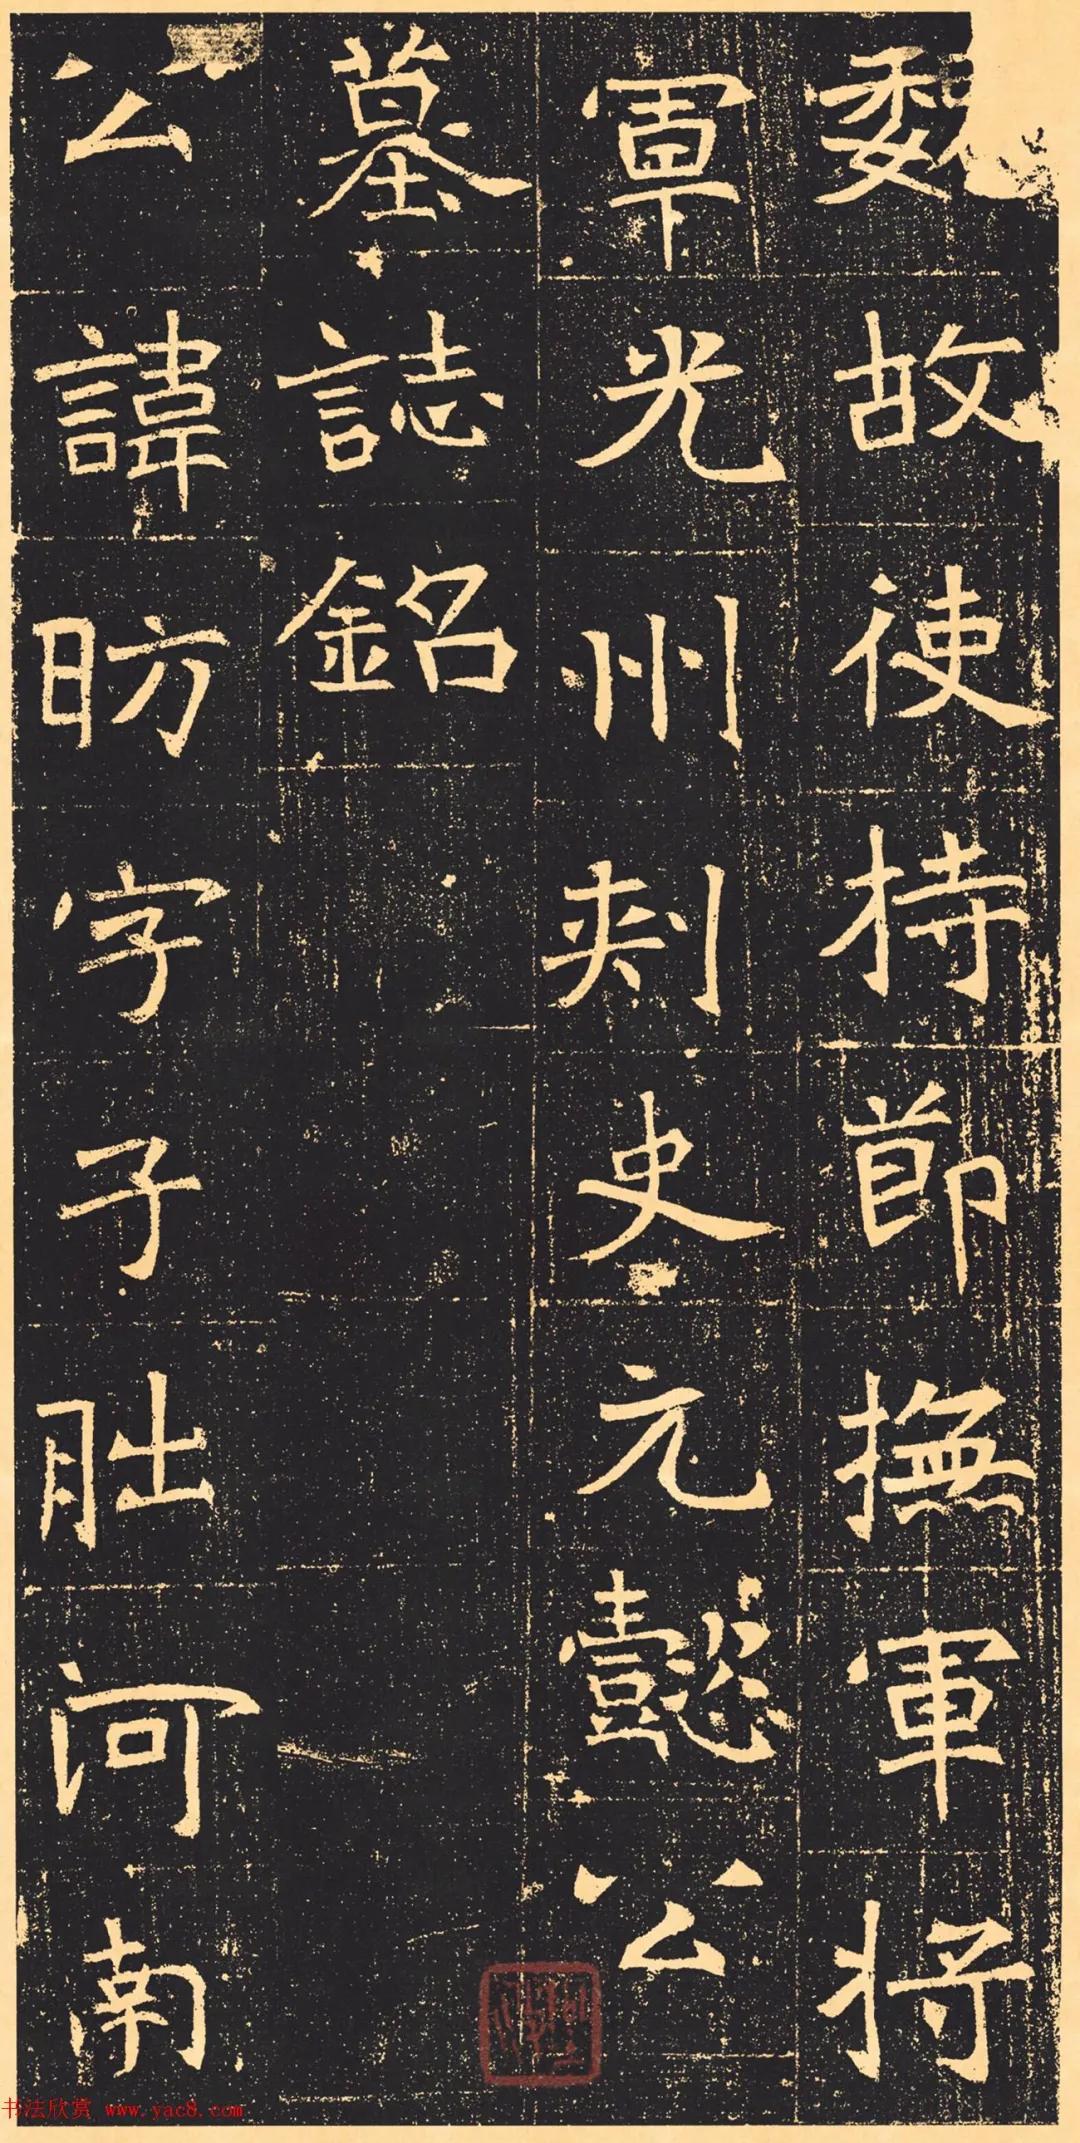 魏故使持節撫軍將
軍光州刺史元懿公
墓誌銘
公諱昉字子朏河南
书法欣赏 www.yac8.com